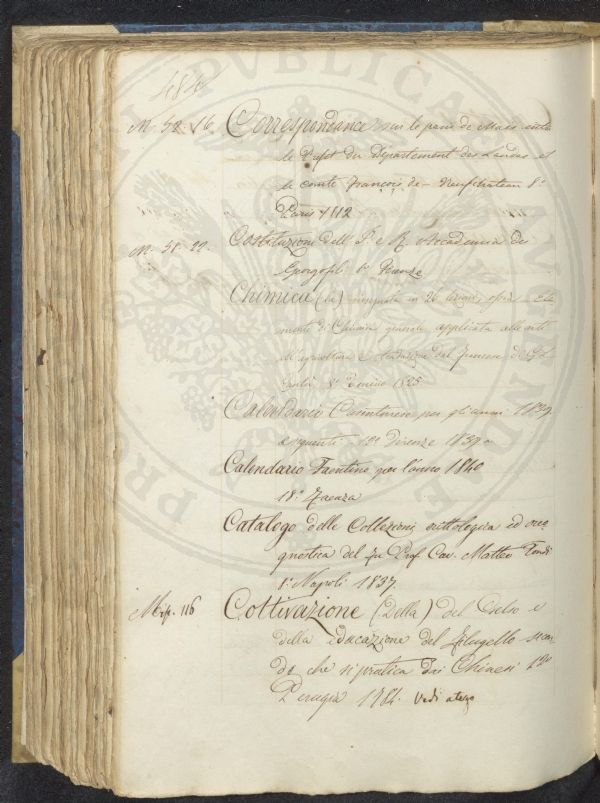 484
M. 52. 16. Correspondance sur le pain de Mais entre
le Préfet du Département des Landes et
le comte François de Neufchateau 8°
Paris 1812
M. 58. 22. Costituzioni dell' I. e R. Accademia de
Georgofili 8° Firenze
Chimica (la) insegnata in 26 lezioni, ossia Ele
menti di Chimica generale applicata alle arti
all'agricoltura traduzione dal francese di
8° Torino 1825
Calendario Casentinese per gli anni 1839
e seguenti 12° Firenze 1839
Calendario Faentino per l'anno 1840
18° Faenza
Catalogo delle Collezioni orittologica ed oreo
gnostica del fu Prof. Cav. Matteo Tondi
Napoli 1837
Misc. 116 Coltivazione (Della) del Gelso e
della educazione del Filugello secon
do che si pratica dai Chinesi
Perugia Vedi atergo